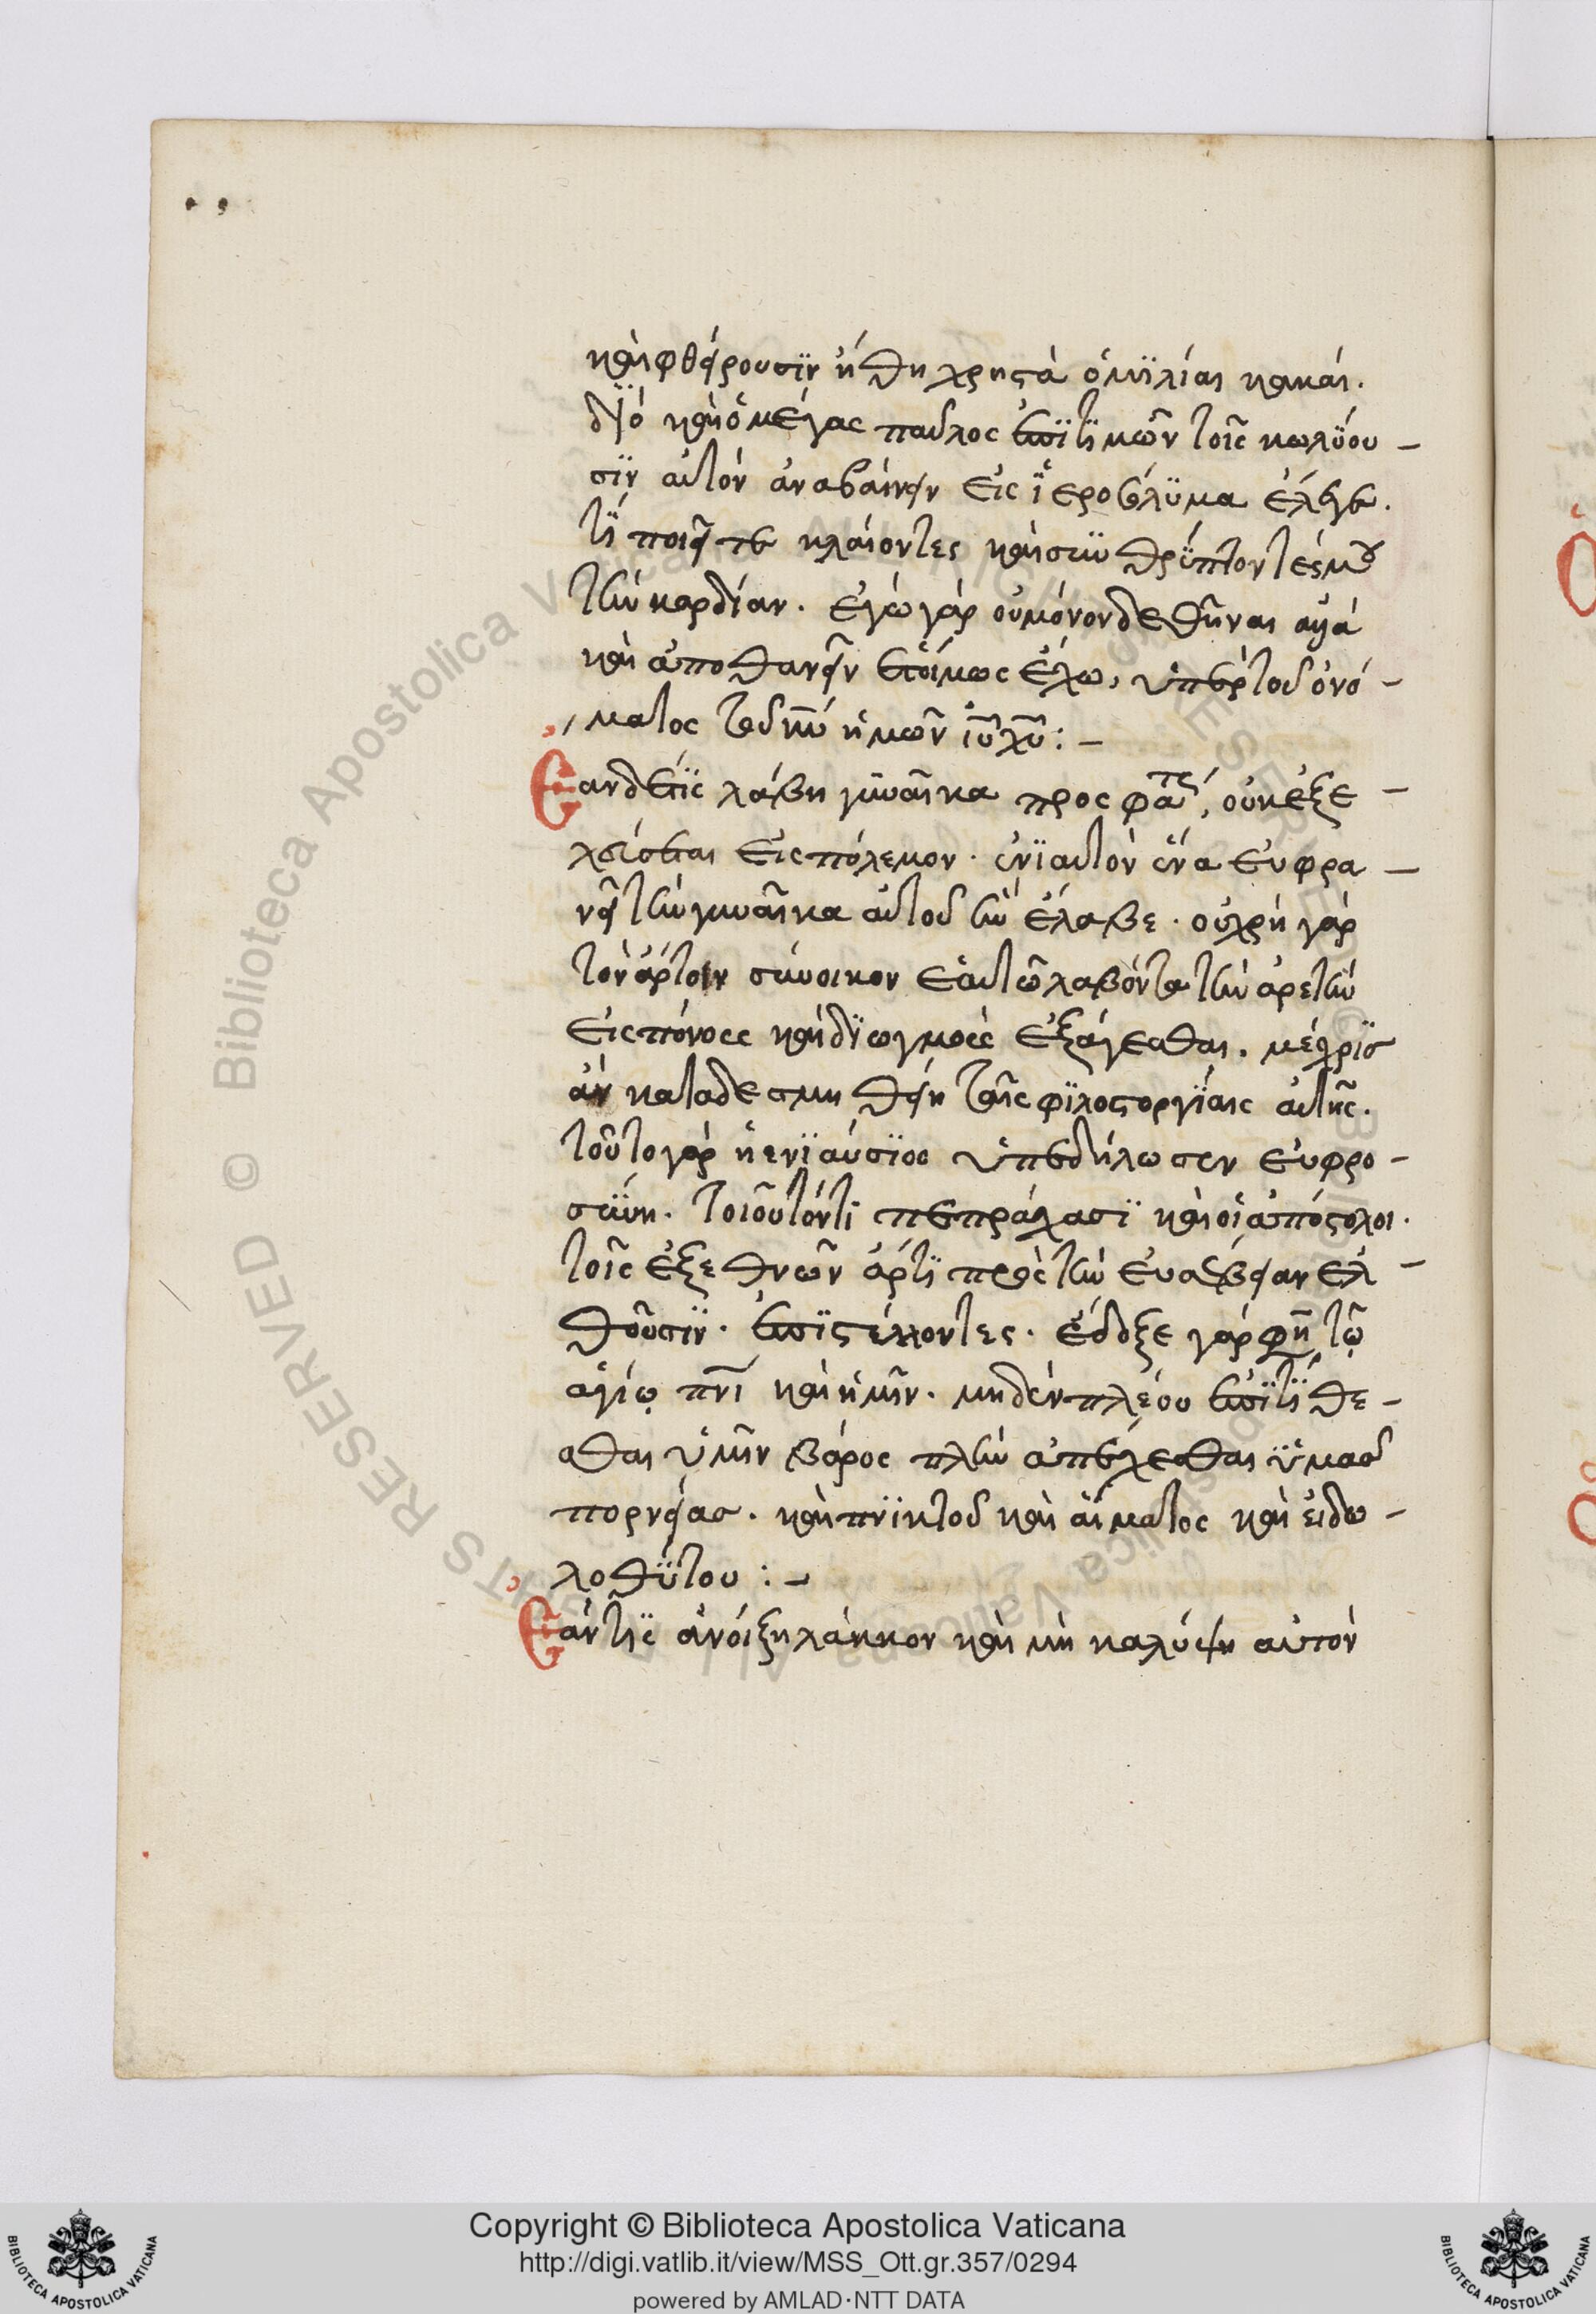 καὶ φθείρουσϊν ἤθη χρηστὰ ὁμϊλίαι κακαί.
δϊὸ καὶ ὁ μέγας παῦλος ἐπϊτϊμῶν τοῖς κωλύου –
σϊν αὐτὸν ἀναβαίνειν εἰς ἱεροσόλϋμα ἔλεγε.
τί ποιεῖτε κλαίοντες καὶ συνθρύπτοντές μου
τὴν καρδίαν. ἐγὼ γὰρ οὐ μόνον δεθῆναι ἀλλὰ
καὶ ἀποθανεῖν ἑτοίμως ἔχω, ὑπὲρ τοῦ ὀνό –
ματος τοῦ κῡ ἡμῶν ῑῡ χῡ: –
Ἐὰν δέ τϊς λάβη γυναῖκα προσφάτως, οὐκ ἐξε –
λεύσεται εἰς πόλεμον. ἐνϊαυτὸν ἕνα εὐφρα –
νεῖ τὴν γυναῖκα αὐτοῦ ἣν ἔλαβε. οὐ χρὴ γὰρ
τὸν ἄρτοιν σύνοικον ἑαυτῶ λαβόντα τὴν ἀρετὴν
εἰς πόνους καὶ δϊωγμοὺς ἐξάγεσθαι. μέχρϊς
ἂν καταδεσμηθείη ταῖς φϊλοστοργϊαις αὐτῆς.
τοῦτο γὰρ ἡ ενϊαύσϊος ὑπεδήλωσεν εὐφρο –
σύνη. τοιοῦτόν τι πεπράχασϊ καὶ οἱ ἀπόστολοι.
τοῖς ἐξ εθνῶν ἄρτϊ πρὸς τὴν ευσέβειαν ελ –
θοῦσϊν. ἐπϊστέλλοντες. ἔδοξε γάρ φη τῷ
ἁγίῳ πνῑ καὶ ἡμῖν. μηδὲν πλέον ἐπϊτίθε –
σθαι ὑμῖν βάρος πλὴν ἀπέχεσθαι ὑμᾶς
πορνείας. καὶ πνϊκτοῦ καὶ αἵματος καὶ εἰδω –
λοθύτου: –
Ἐάν τϊς ἀνοίξη λάκκον καὶ μὴ καλύψη αὐτὸν
Copyright © Biblioteca Apostolica Vaticana
http://digi.vatlib.it/view/MSS_Ott.gr.357/0294
powered by AMLAD·NTT DATA